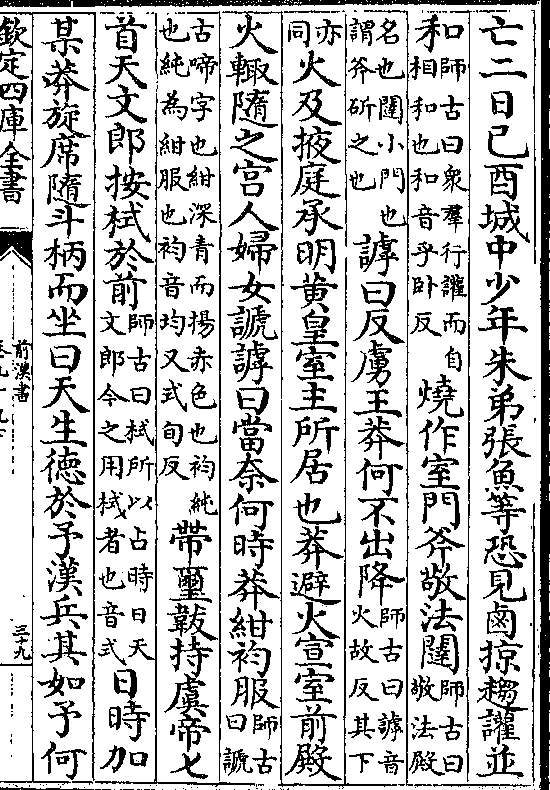 亡二日己酉城中少年朱弟張魚等恐見鹵掠趨讙並
和師古曰衆羣行讙而自相和也和音乎卧反燒作室門斧敬法闥師古曰敬法殿
名也闥小門也謂斧斫之也謼曰反虜王莽何不出降師古曰謼音火故反其下
亦同火及掖庭承明黄皇室主所居也莽避火宣室前殿
火輙隨之宫人婦女謕謼曰當奈何時莽紺袀服師古曰謕
古啼字也紺深青而揚赤色也袀純也純為紺服也袀音均又式旬反帶璽韍持虞帝匕
首天文郎按栻於前師古曰栻所以占時日天文郎今之用栻者也音式日時加
某莽旋席隨斗柄而坐曰天生徳於予漢兵其如予何
欽定四庫全書
前漢書
三十九